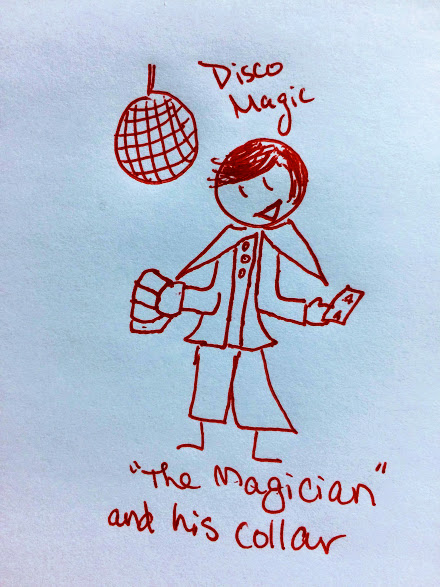 Disco
Magic
4
4
"The Magician"
and his collar